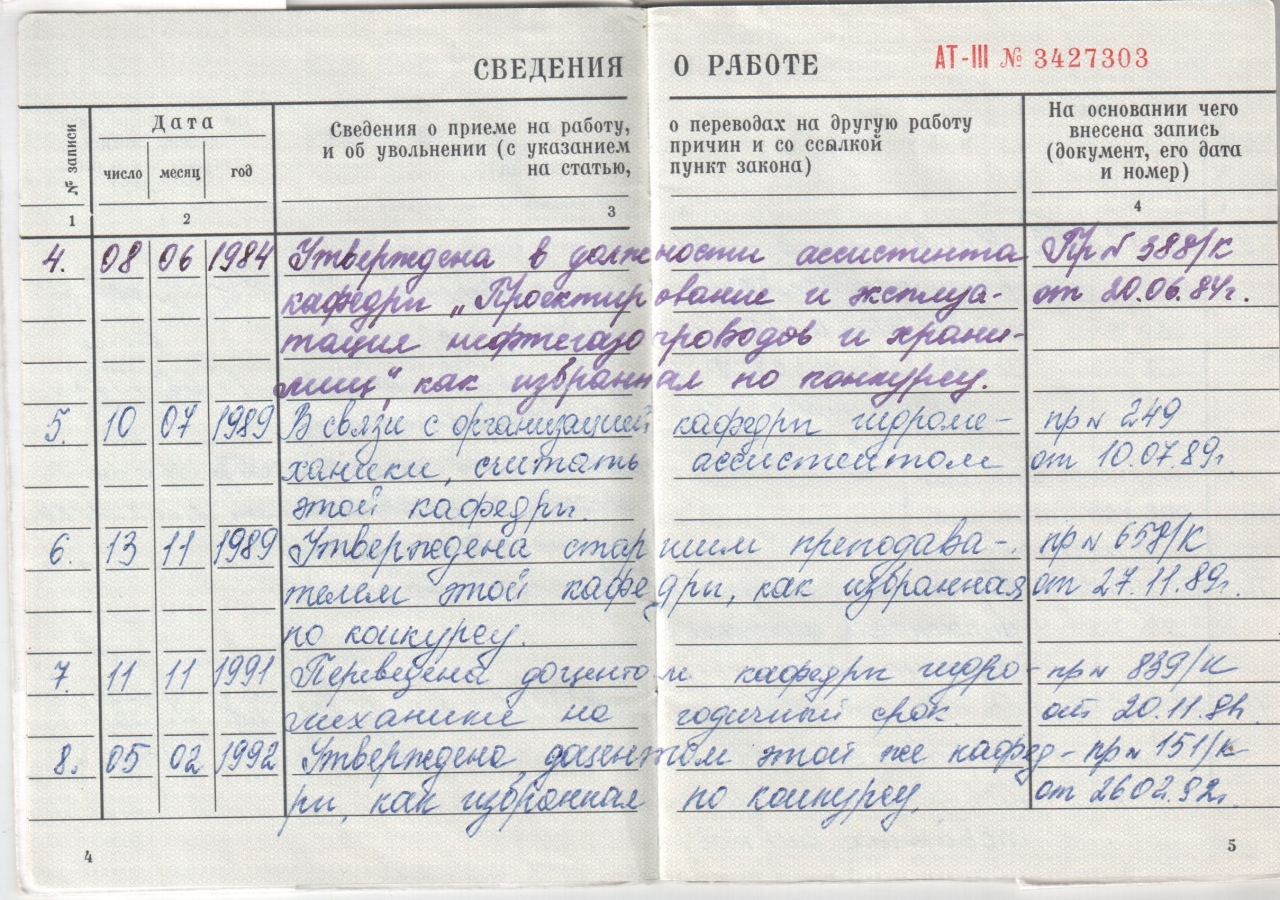 СВЕДЕНИЯ О РАБОТЕ АТ-III № 3427303
№ записи
Дата
число месяц год
Сведения о приеме на работу, о переводах на другую работу
и об увольнении (с указанием причин и со ссылкой
на статью, пункт закона)
На основании чего
внесена запись
(документ, его дата
и номер)
1 2 3 4
4. 08 06 1984 Утверждена в должности ассистента Пр № 388/К
кафедры „Проектирование и эксплуа- от 20.06.84г.
тация нефтегазопроводов и храни-
лищ", как избранная по конкурсу.
5. 10 07 1989 В связи с организацией кафедры гидроме- пр № 249
ханики, считать ассистентом от 10.07.89г.
этой кафедры.
6. 13 11 1989 Утверждена старшим преподава- пр № 658/К
телем этой кафедры, как избранная от 27.11.89г.
по конкурсу.
7. 11 11 1991 Переведена доцентом кафедры гидро- пр № 839/К
механики на годичный срок. от 20.11.91.
8. 05 02 1992 Утверждена доцентом этой же кафед- пр № 151/К
ры, как избранная по конкурсу. от 26.02.92г.
4 5